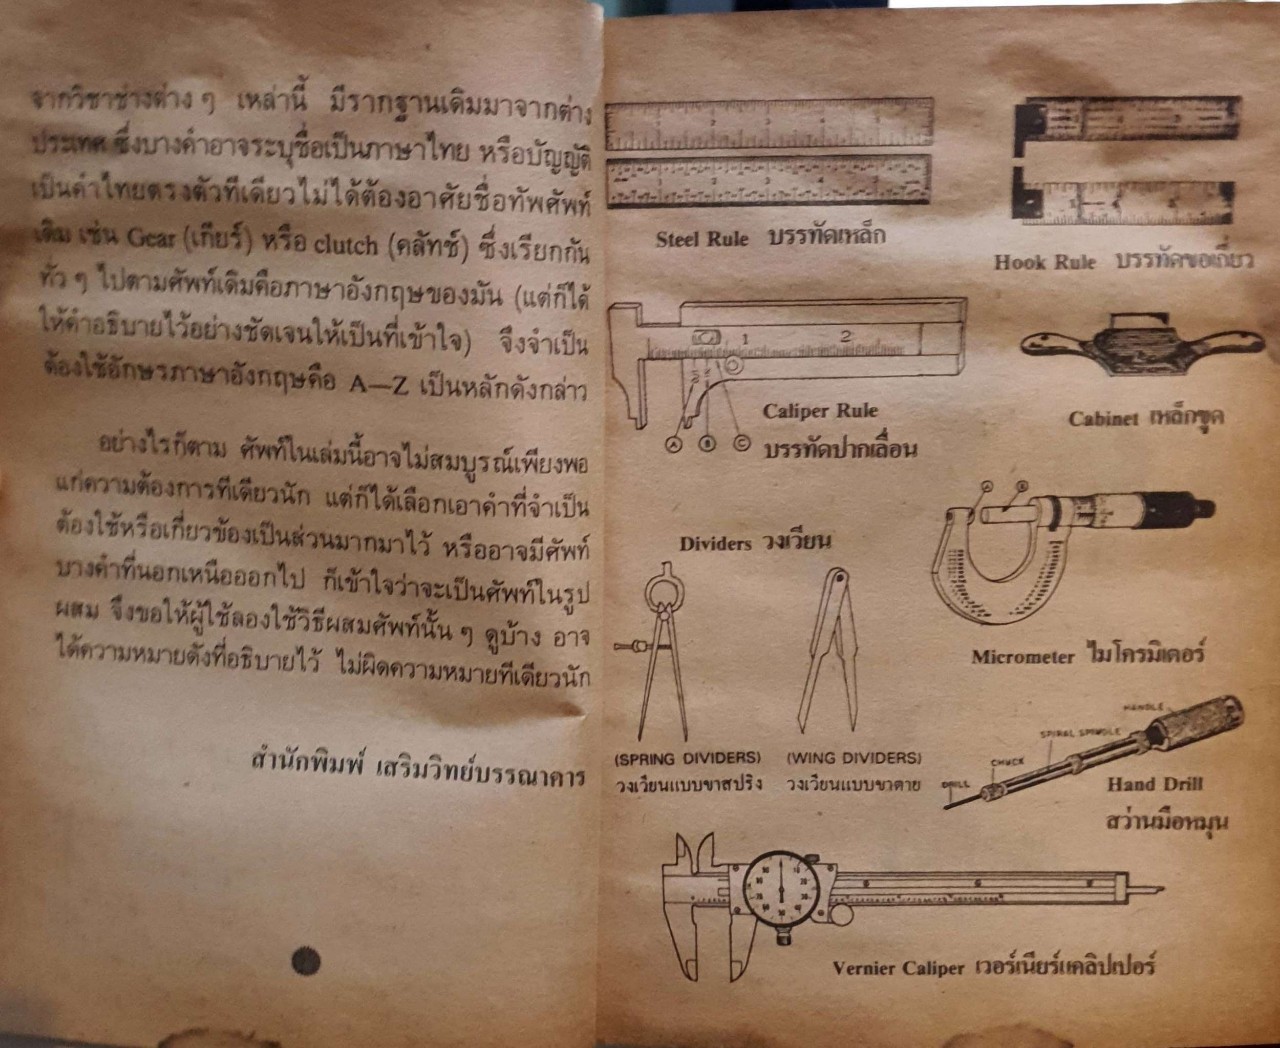 จากวิชาช่างต่าง ๆ เหล่านี้ มีรากฐานเดิมมาจากต่าง
ประเทศ ซึ่งบางคำอาจระบุชื่อเป็นภาษาไทย หรือบัญญัติ
เป็นคำไทยตรงตัวทีเดียวไม่ได้ต้องอาศัยชื่อทัพศัพท์
เดิม เช่น Gear (เกียร์) หรือ clutch (คลัทช์) ซึ่งเรียกกัน
ทั่ว ๆ ไปตามศัพท์เดิมคือภาษาอังกฤษของมัน (แต่ก็ได้
ให้คำอธิบายไว้อย่างชัดเจนให้เป็นที่เข้าใจ) จึงจำเป็น
ต้องใช้อักษรภาษาอังกฤษคือ A—Z เป็นหลักดังกล่าว
อย่างไรก็ตาม ศัพท์ในเล่มนี้อาจไม่สมบูรณ์เพียงพอ
แก่ความต้องการทีเดียวนัก แต่ก็ได้เลือกเอาคำที่จำเป็น
ต้องใช้หรือเกี่ยวข้องเป็นส่วนมากมาไว้ หรืออาจมีศัพท์
บางคำที่นอกเหนือออกไป ก็เข้าใจว่าจะเป็นศัพท์ในรูป
ผสม จึงขอให้ผู้ใช้ลองใช้วิธีผสมศัพท์นั้น ๆ ดูบ้าง อาจ
ได้ความหมายดังที่อธิบายไว้ ไม่ผิดความหมายทีเดียวนัก
สำนักพิมพ์ เสริมวิทย์บรรณาคาร
Steel Rule บรรทัดเหล็ก
Hook Rule บรรทัดขอเกี่ยว
1 2
Caliper Rule
บรรทัดปากเลื่อน
A B C
Cabinet เหล็กขูด
Dividers วงเวียน
(SPRING DIVIDERS)
วงเวียนแบบขาสปริง
(WING DIVIDERS)
วงเวียนแบบขาตาย
A B
Micrometer ไมโครมิเตอร์
HANDLE
SPIRAL SPINDLE
CHUCK
DRILL
Hand Drill
สว่านมือหมุน
Vernier Caliper เวอร์เนียร์แคลิปเปอร์